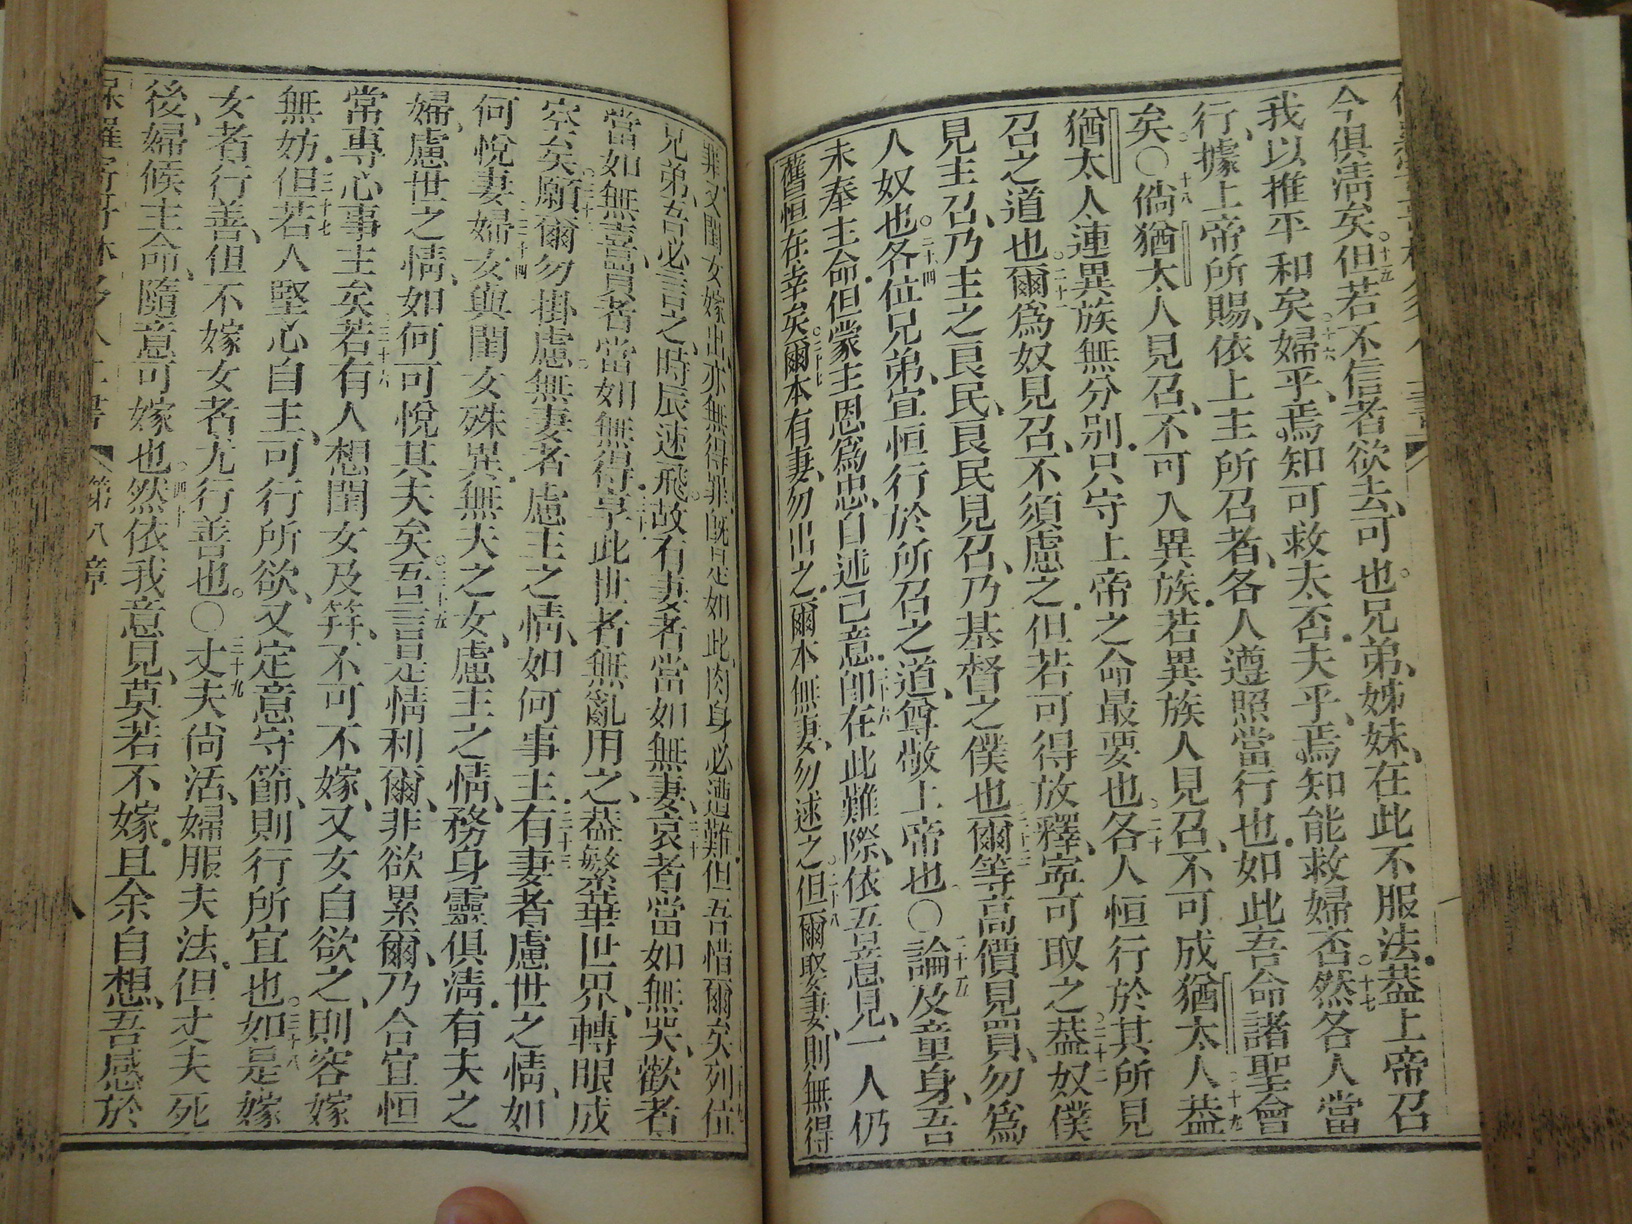 今俱淸矣但若不信者欲去、可也。兄弟、姊妹、在此不服法蓋上帝召
十五
我以推平和矣婦乎、焉知可救太否夫乎、焉知能救婦否然各人當
十六 十七
行、據上帝所賜、依上主所召者、各人遵照當行也如此吾命諸聖會
矣〇倘猶太人見召、不可入異族若異族人見召、不可成猶太人蓋
十八 十九
猶太人連異族無分別只守上帝之命最要也各人恒行於其所見
二十
召之道也爾爲奴見召、不須慮之但若可得放釋、寧可取之蓋奴僕
二十一 二十二
見主召、乃主之良民、良民見召、乃基督之僕也爾等高價見買、勿爲
二十三
人奴也各位兄弟、宜恒行於所召之道、尊敬上帝也〇論及童身、吾
二十四 二十五
未奉主命但蒙主恩爲忠、自述己意卽在此難際、依吾意見、一人仍
二十六
舊恒在幸矣爾本有妻、勿出之爾本無妻、勿逑之但爾娶妻、則無得
二十七 二十八
罪又閨女嫁出、亦無得罪、旣是如此肉身必遭難但吾惜爾矣列位
兄弟、吾必言之、時辰速飛故有妻者當如無妻、哀者當如無哭、歡者
三十
當如無喜買者當如無得享此世者無亂用之、蓋繁華世界、轉眼成
三十一
空矣願爾勿掛慮無妻者慮主之情、如何事主有妻者慮世之情、如
三十二 三十三
何悅妻婦女與閨女殊異無夫之女、慮主之情、務身靈俱淸有夫之
三十四
婦、慮世之情、如何可悅其夫矣吾言是情利爾、非欲累爾、乃合宜恒
三十五
常專心事主矣若有人想閨女及笄、不可不嫁、又女自欲之、則容嫁
三十六
無妨但若人堅心自主、可行所欲、又定意守節、則行所宜也如是嫁
三十七 三十八
女者行善、但不嫁女者尤行善也。〇丈夫尙活、婦服夫法但丈夫死
三十九
後、婦候主命、隨意可嫁也然依我意見、莫若不嫁且余自想、吾感於
四十
第八章